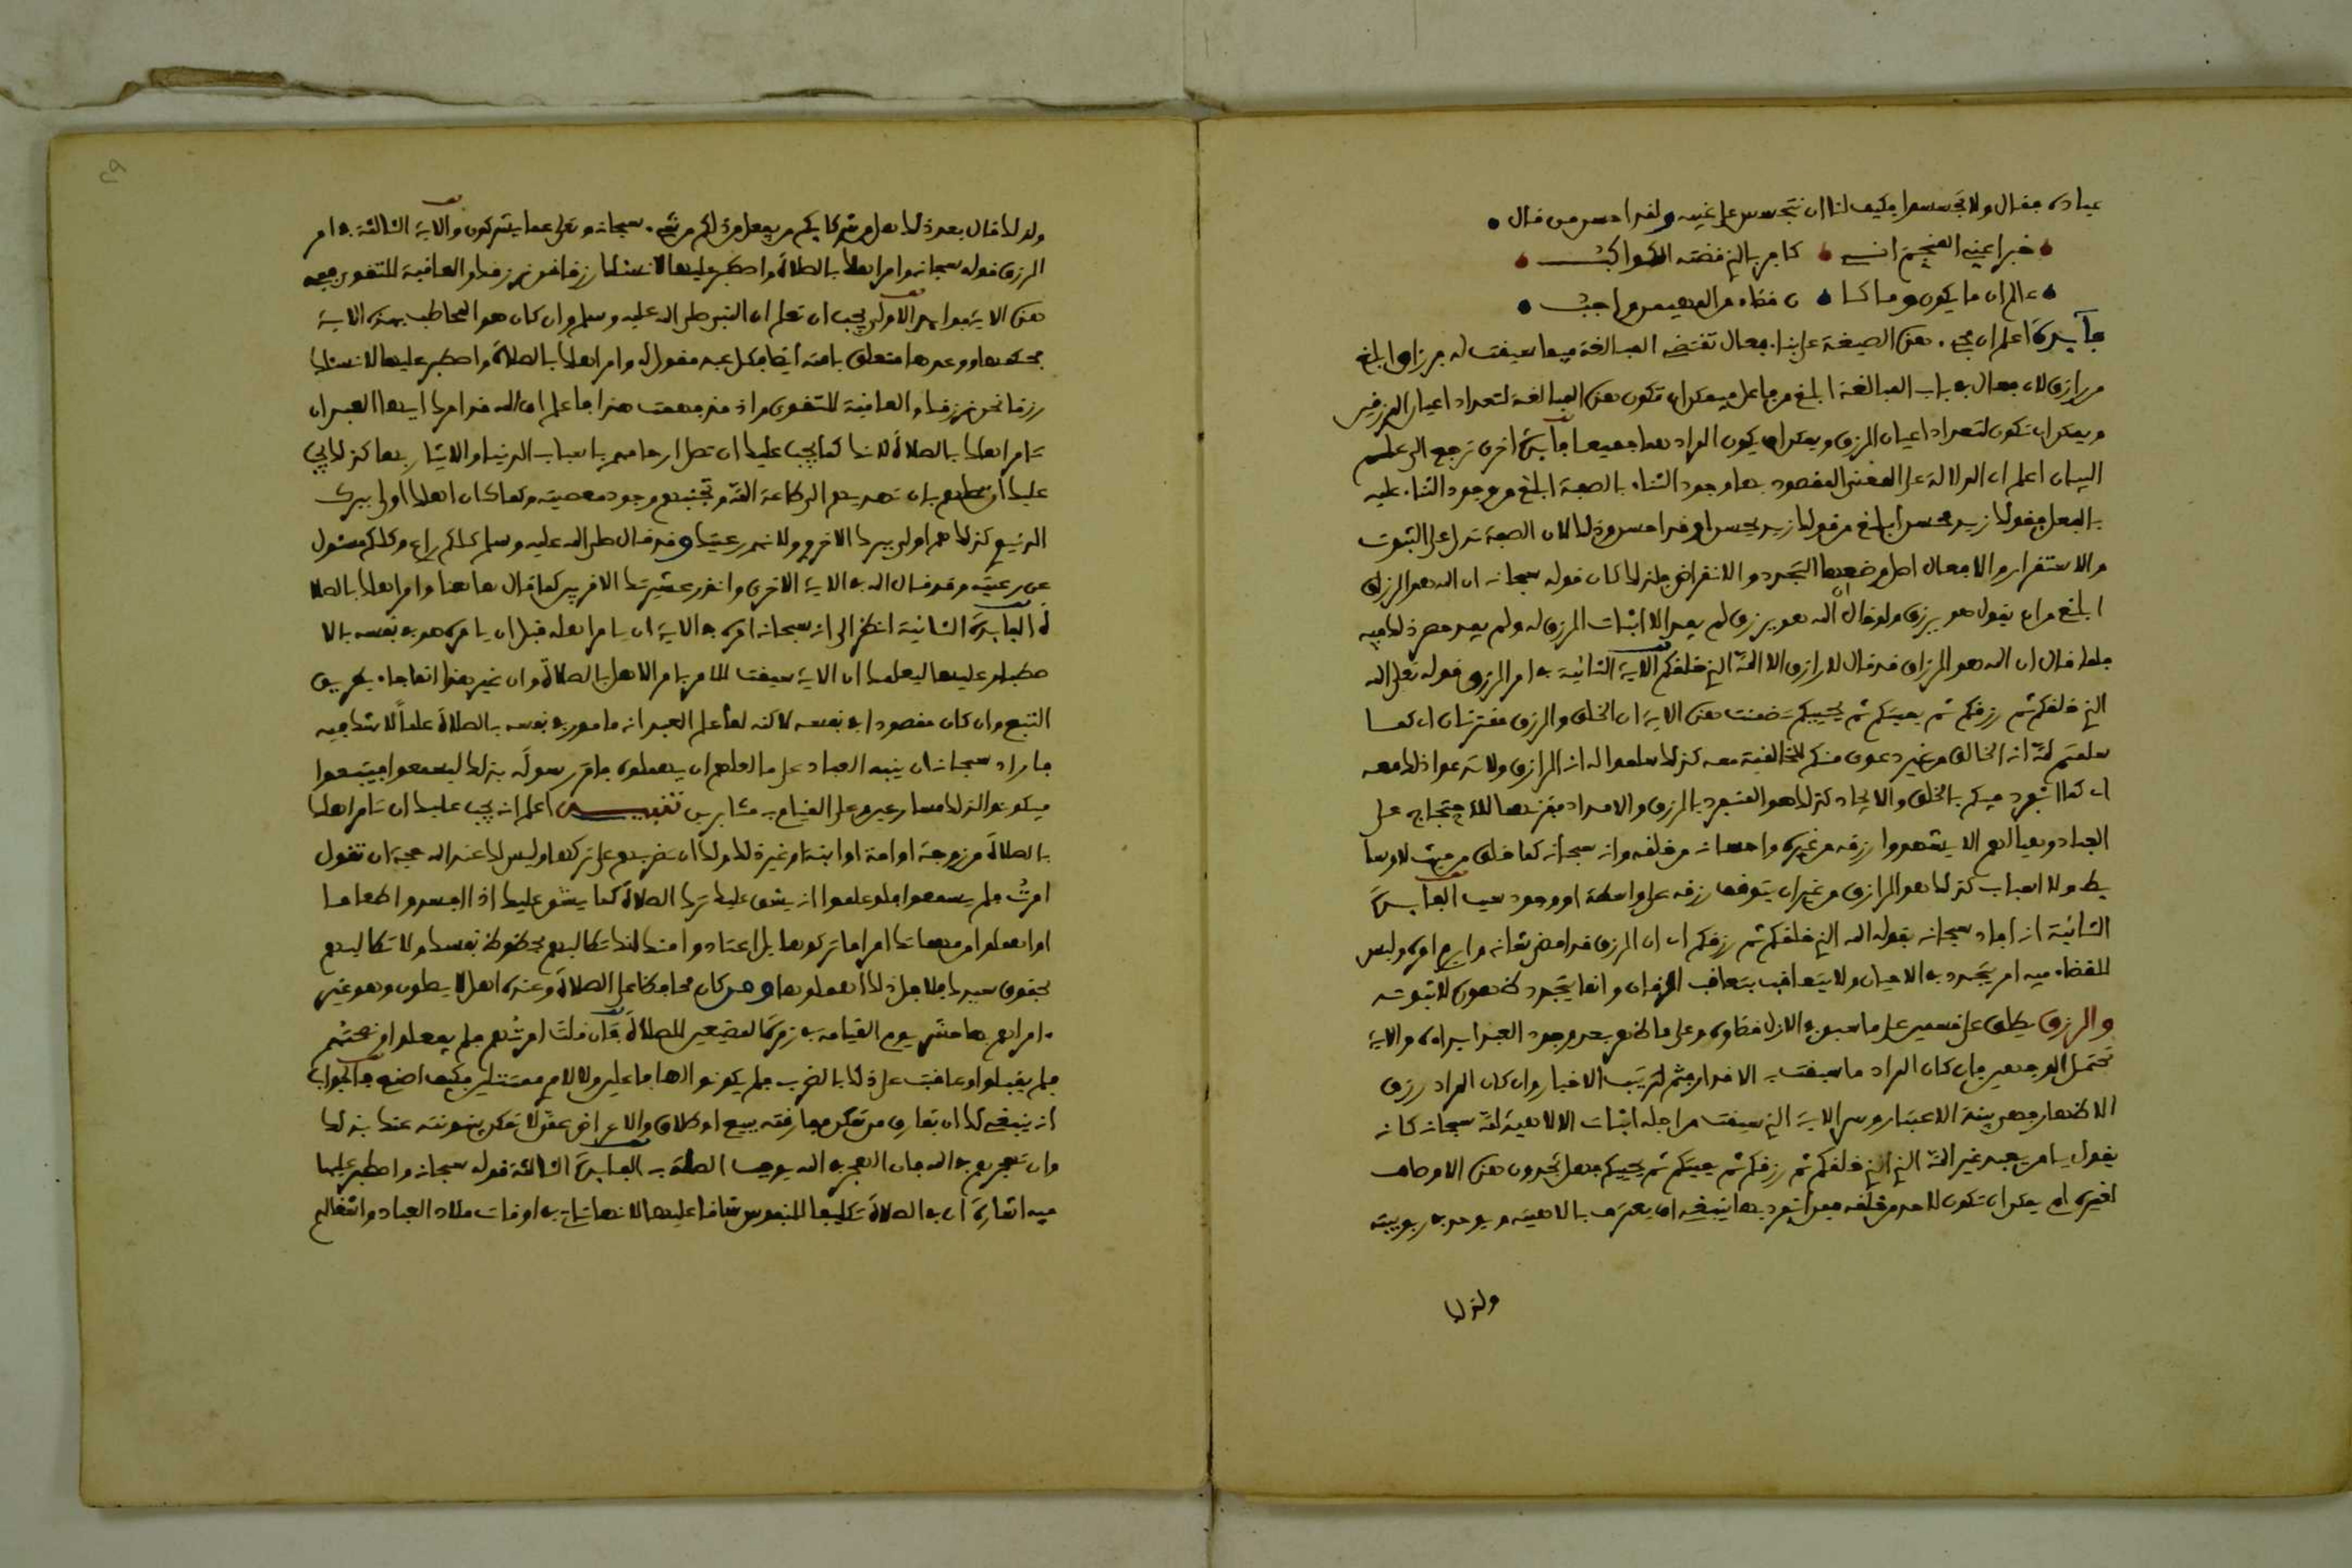 عباده فقال ولا تجسسوا فكيف لنا ان نتجسس على غيبه ولقد احسن من قال
خبرا عني المنجم اني كافر بالذي قضته الكواكب
عالم ان ما يكون وما كا ن قضاء من المهيمن واجب
فايدة اعلم ان مجيء هذه الصيغة على بناء فعال تقتضي المبالغة فيما سيقت له فرزاق ابلغ
من رازق لان فعال في باب المبالغة ابلغ من فاعل فيمكن ان تكون هذه المبالغة لتعداد اعيان المرزوقين
ويمكن ان تكون لتعداد اعيان الرزق ويمكن ان يكون المراد هما جميعا فايدة اخرى ترجع الى علم
البيان اعلم ان الدلالة على المعنى المقصود بها وجود الثناء بالصفة ابلغ من وجود الثناء عليه
بالفعل فقولك زيد محسن ابلغ من قولك زيد يحسن او قد احسن وذلك لان الصفة تدل على الثبوت
والاستقرار والافعال اصل وضعها التجدد والانقراض فلذلك كان قوله سبحانه ان الله هو الرزاق
ابلغ من ان يقول هو يرزق ولو قال ان الله هو يرزق لم يفد الا اثبات الرزق له ولم يفد حصر ذلك فيه
فلما قال ان الله هو الرزاق فقد قال لا رازق الا الله الذي خلقكم الاية الثانية في امر الرزق قوله تعلى الله
الذي خلقكم ثم رزقكم ثم يميتكم ثم يحييكم تضمنت هذه الاية ان الخلق والرزق مقترنان اي كما
سلمتم لله انه الخالق من غير دعوى منكم للخالقية معه كذلك سلموا له انه الرازق ولا تدعوا ذلك معه
اي كما انفرد فيكم بالخلق والايجاد كذلك هو المنفرد بالرزق والامداد فقرنهما للاحتجاج على
العباد ونهيا لهم الا يشهدوا رزقه من غيره واحسانه من خلقه وانه سبحانه كما خلق من حيث لا وسا
يط ولا اسباب كذلك هو الرازق من غير ان يتوقف رزقه على واسطة او وجود سبب الفايدة
الثانية انه افاد سبحانه بقوله الله الذي خلقكم ثم رزقكم اي ان الرزق قد امضى شانه وابرم امره وليس
للقضاء فيه امر يتجدد في الاحيان ولا يتعاقب بتعاقب الزمان وانما يتجدد ظهوره لا ثبوته
والرزق يطلق على قسمين على ما سبق في الازل قضاوه وعلى ما ظهر بعد وجود العبد ابداوه والاية
تحتمل الوجهين فان كان المراد ما سبقت به الاقدار فثم لترتيب الاخبار وان كان المراد رزق
الاظهار فهي بينة الاعتبار وسر الاية التي سيقت من اجله اثبات الالاهية لله سبحانه كانه
يقول يا من يعبد غير الله الذي خلقكم ثم رزقكم ثم يميتكم ثم يحييكم فهل تجدون هذه الاوصاف
لغيره ام يمكن ان تكون لاحد من خلقه فمن انفرد بها ينبغي ان يعترف بالاهيته ويوحد في ربوبيته
ولذلك
ولذلك قال بعد ذلك هل من شركايكم من يفعل من ذلكم من شيء سبحانه وتعلى عما يشركون والاية الثالثة في امر
الرزق قوله سبحانه وامر اهلك بالصلاة واصطبر عليها لا نسئلك رزقا نحن نرزقك والعاقبة للتقوى ففي
هذه الاية فوايد الاولى يجب ان تعلم ان النبي صلى الله عليه وسلم وان كان هو المخاطب بهذه الاية
فحكمها ووعدها متعلق بامته ايضا فكل عبد مقول له وامر اهلك بالصلاة واصطبر عليها لا نسئلك
رزقا نحن نرزقك والعاقبة للتقوى واذ قد فهمت هذا فاعلم ان الله قد امرك ايها العبد ان
تامر اهلك بالصلاة لانه كما يجب عليك ان تصل ارحامهم باسباب الدنيا والايثار بها كذلك يجب
عليك ان تصلهم بان تهديهم الى طاعة الله وتجنبهم وجود معصيته وكما كان اهلك اولى ببرك
الدنيوي كذلك هم اولى ببرك الاخروي ولانهم رعيتك وقد قال صلى الله عليه وسلم كلكم راع وكلكم مسئول
عن رعيته وقد قال الله في الاية الاخرى وانذر عشيرتك الاقربين كما قال هاهنا وامر اهلك بالصلا
ة الفايدة الثانية انظر الى انه سبحانه امره في الاية ان يامر اهله قبل ان يامره هو في نفسه بالا
صطبار عليها ليعلمك ان الاية سيقت للامر يامر الاهل بالصلاة وان غير هذا انما جاء بطريق
التبع وان كان مقصودا في نفسه لاكنه لما علم العبد انه مامور في نفسه بالصلاة علما لا شك فيه
فاراد سبحانه ان ينبه العباد على ما لعلهم ان يهملوه فامر رسوله بذلك ليسمعوا فيتبعوا
فيكونوا لذلك مسارعين وعلى القيام به مثابرين تنبيه اعلم انه يجب عليك ان تامر اهلك
بالصلاة من زوجة او امة او ابنة او غير ذلك ولك ان تضربهم على تركها وليس لك عند الله حجة ان تقول
امرت فلم يسمعوا فلو علموا انه يشق عليك ترك الصلاة كما يشق عليك اذا افسدوا طعاما
او اهملوا من مهماتك امرا ما تركوها بل اعتادوا منك انك تطالبهم بحظوظ نفسك ولا تطالبهم
بحقوق سيدك فلاجل ذلك اهملوها ومن كان محافظا على الصلاة وعنده اهل لا يصلون وهو غير
ءامر لهم بها حشر يوم القيامة في زمرة المضيعين للصلاة فان قلت امرتهم فلم يفعلوا ونصحتهم
فلم يقبلوا وعاقبت على ذلك بالضرب فلم يكونوا فاعلين ولا لامري ممتثلين فكيف اصنع فالجواب
انه ينبغي لك ان تفارق من تمكن مفارقته ببيع او طلاق والاعراض عمن لا تمكن بينونته عنك بذلك
وان تهجرهم في الله فان الهجر في الله يوجب الصلة به الفايدة الثالثة قوله سبحانه واصطبر عليها
فيه اشارة ان في الصلاة تكليفا للنفوس شاقا عليها لانها تاتي في اوقات ملاذ العباد واشغالهم
٤٩